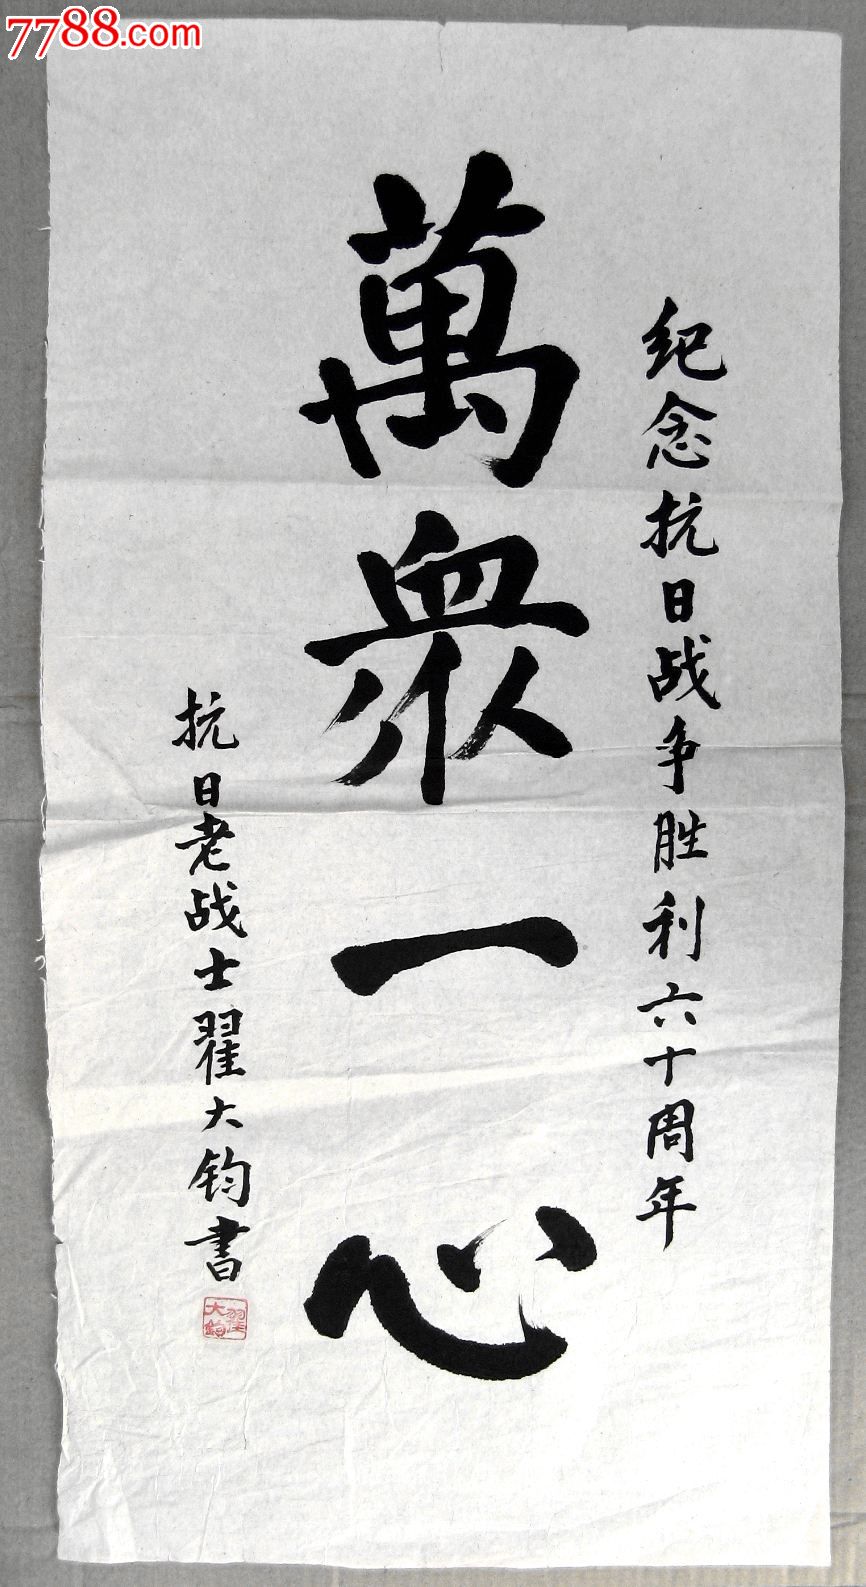 7788.com
纪念抗日战争胜利六十周年
萬眾一心
抗日老战士翟大钧書
翟大鈞